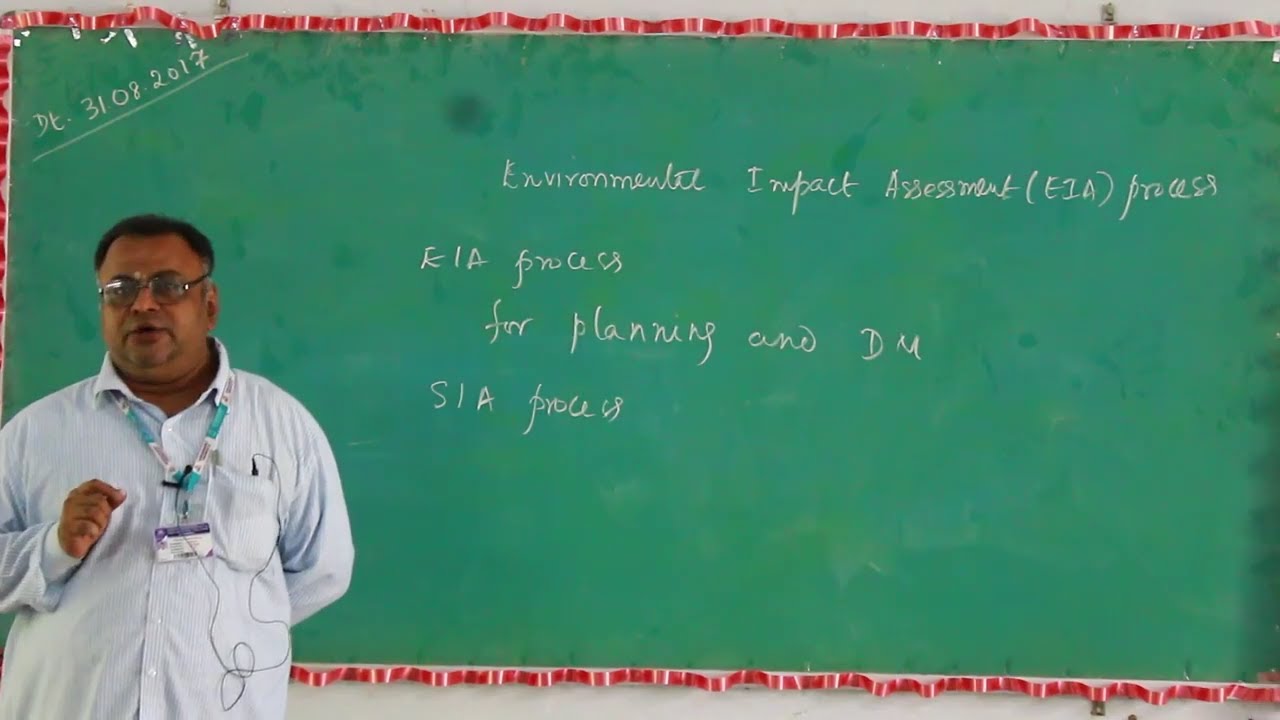 Dt. 31.08.2017
Environmental Impact Assessment (EIA) process
EIA process
for planning and DM
SIA process